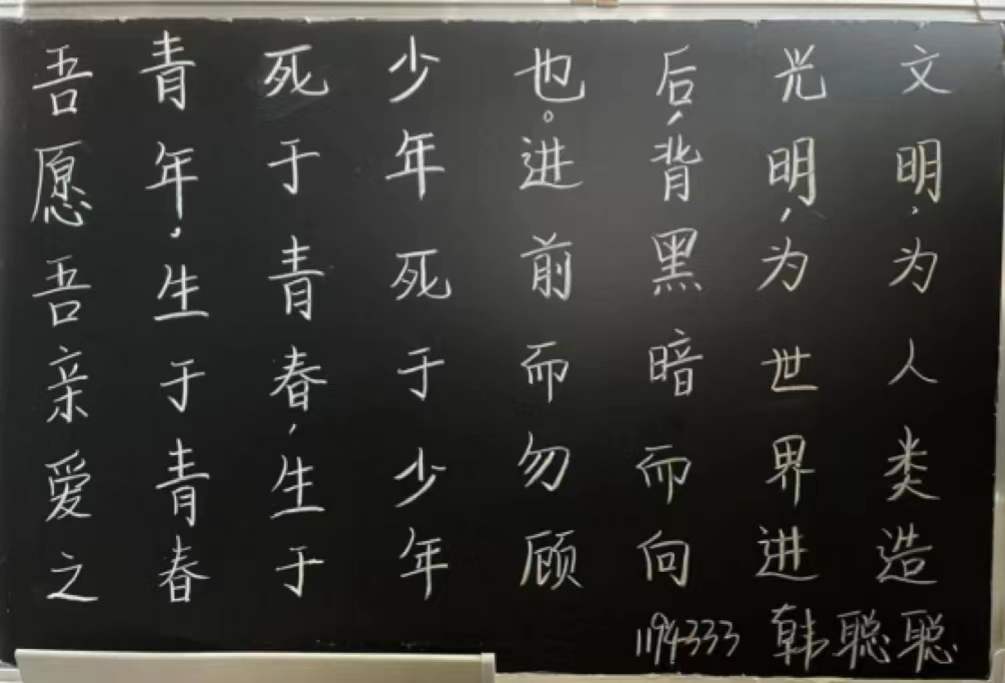 吾愿吾亲爱之
青年，生于青春
死于青春，生于
少年死于少年
也。进前而勿顾
后，背黑暗而向
光明，为世界进
文明，为人类造
1194333 韩聪聪